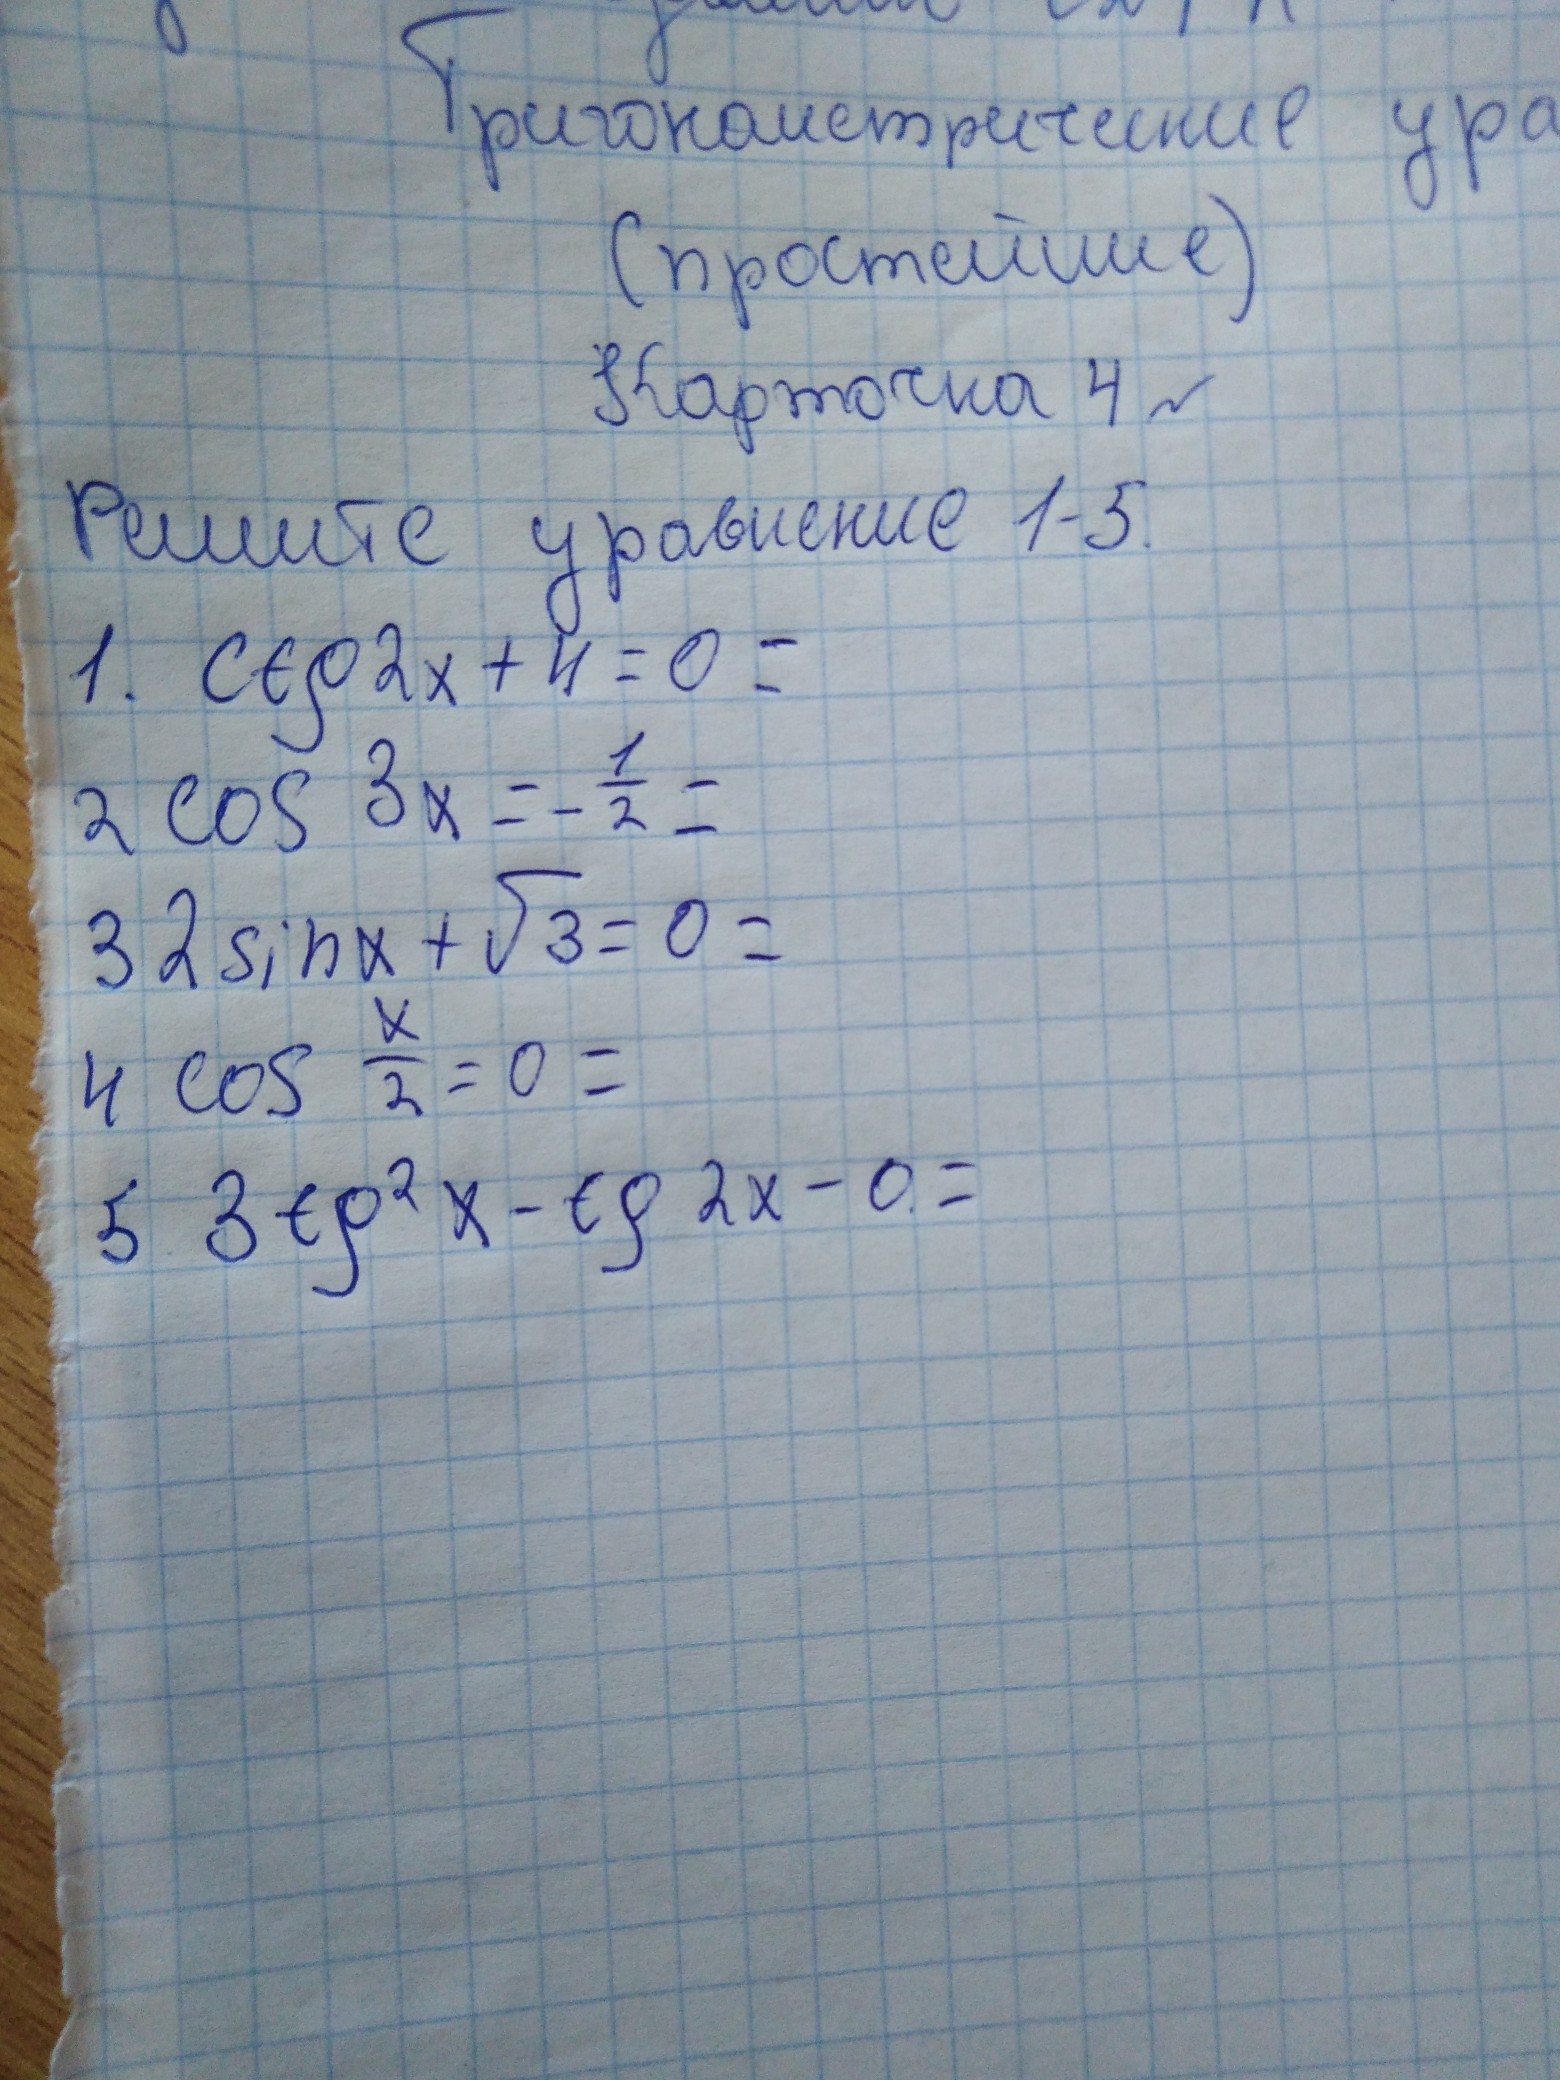 Тригонометрические ура
(простейшие)
Карточка 4
Решите уравнение 1-5.
1. ctg 2x + 4 = 0 =
2 cos 3x = - 1/2 =
3 2 sin x + √3 = 0 =
4 cos x/2 = 0 =
5 3 tg² x - tg 2x - 0. =